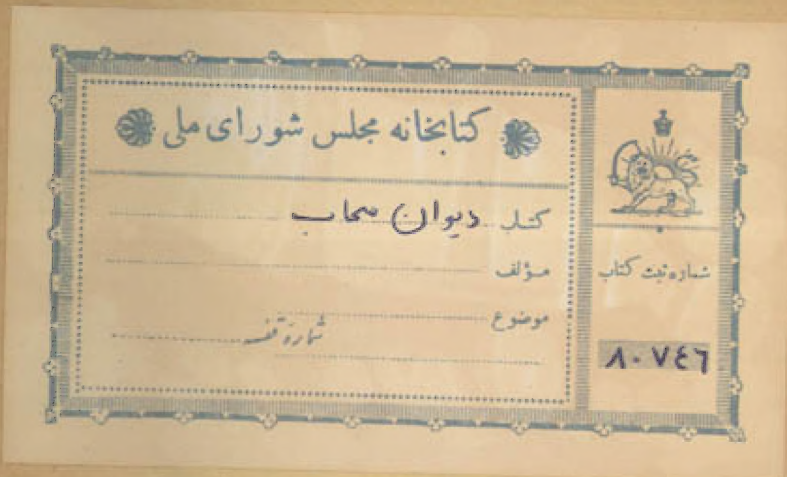 کتابخانه مجلس شورای ملی
کتاب دیوان سحاب
مؤلف
موضوع
شمارهٔ قفسه
شماره ثبت کتاب
۸۰۷۴۶